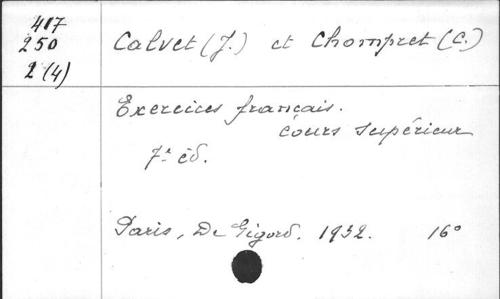 417
250
2(4)
Calvet (J.) et Chompret (C.)
Exercices français.
cours supérieur
7e éd.
Paris, De Gigord. 1932. 16°